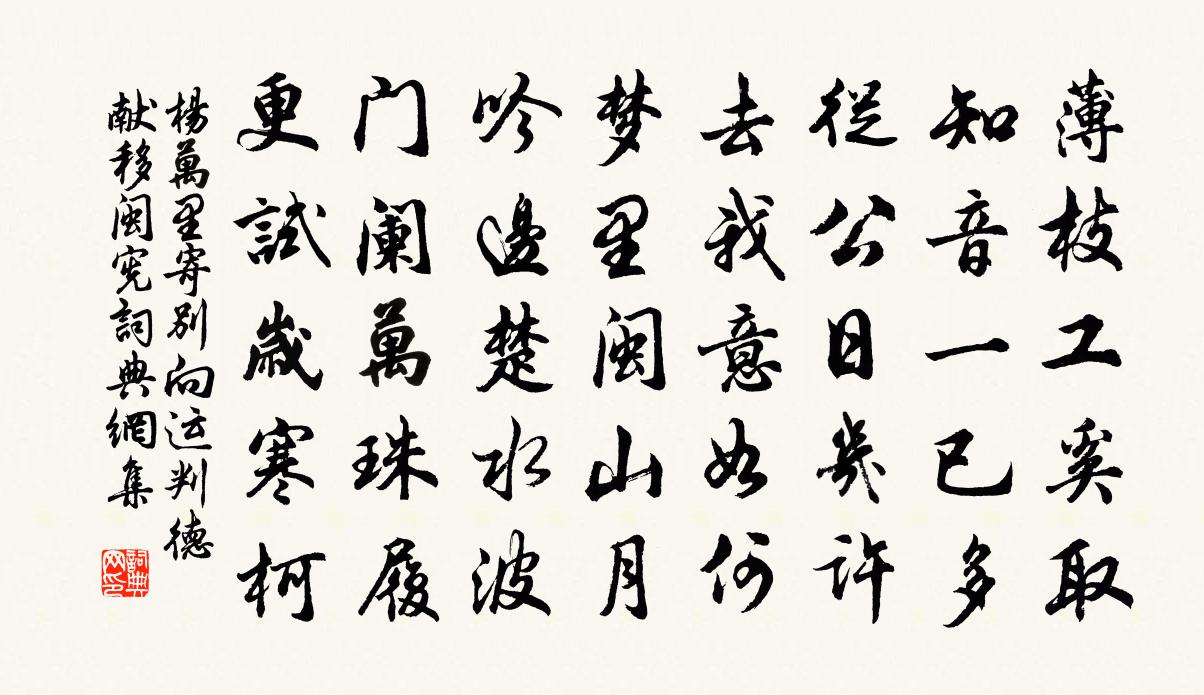 薄枝工奚取
知音一已多
從公日幾許
去我意如何
梦里闽山月
吟邊楚水波
门阑萬珠履
更試歲寒柯
楊萬里寄别向运判德
献移闽宪詞典網集
詞典
网印